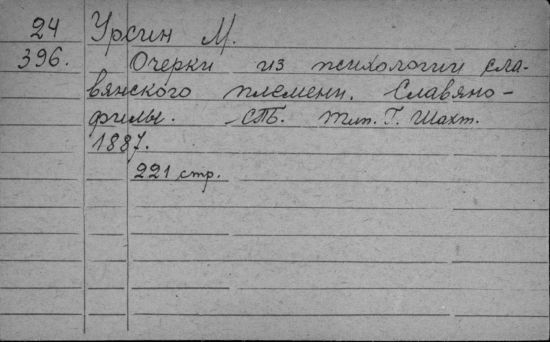 24 Урсин М.
396. Очерки из психологии сла-
вянского племени. Славяно-
филы. СПБ. Тип. Г. Шахт.
1887.
221 стр.